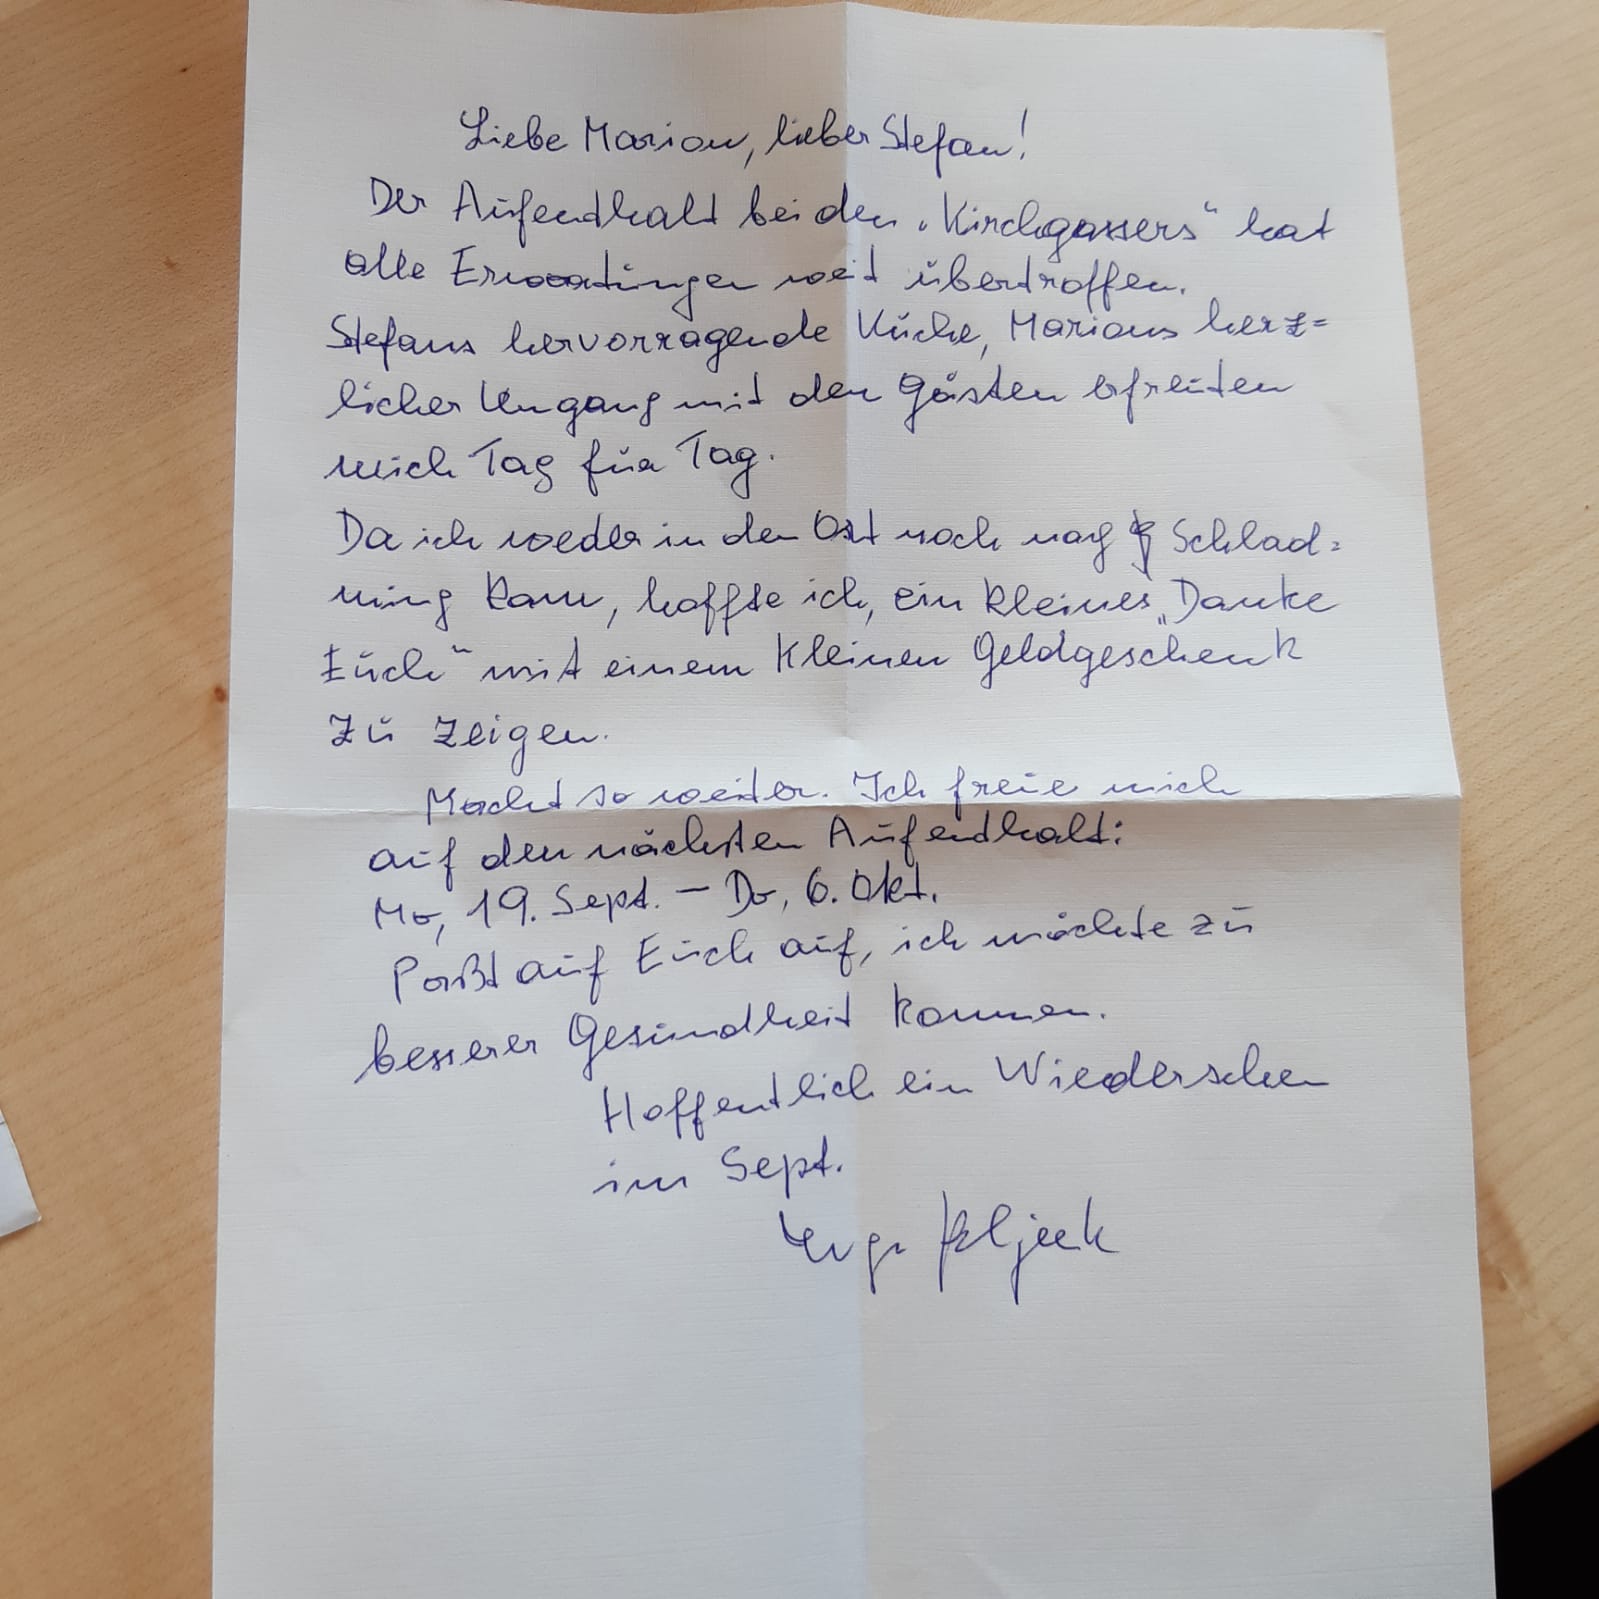 Liebe Marion, lieber Stefan!
Der Aufendhalt bei den „Kirchgassers“ hat
alle Erwartungen weit übertroffen.
Stefans hervorragende Küche, Marions herz=
licher Umgang mit den Gästen erfreuten
mich Tag für Tag.
Da ich weder in den Ort noch nach Schlad=
ming kam, hoffte ich, ein kleines „Danke
Euch“ mit einem kleinen Geldgeschenk
zu zeigen.
Macht so weiter. Ich freue mich
auf den nächsten Aufendhalt:
Mo, 19. Sept. – Do, 6. Okt.
Paßt auf Euch auf, ich möchte zu
besserer Gesundheit kommen.
Hoffentlich ein Wiedersehen
im Sept.